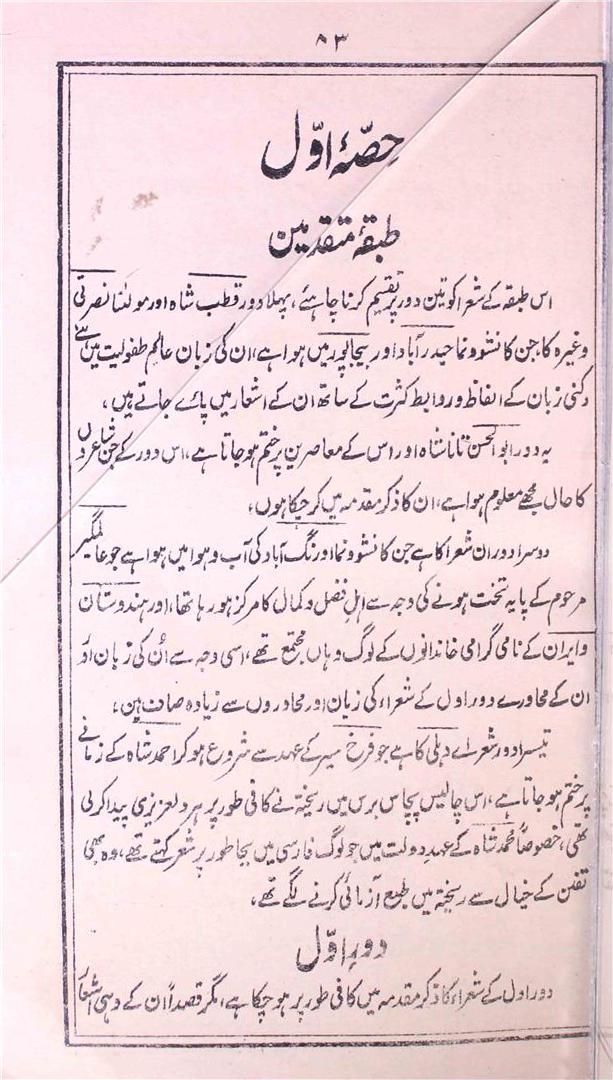 ۸۳
حصّۂ اوّل
طبقۂ متقدمین
اس طبقہ کے شعرا کو تین دور پر تقسیم کرنا چاہئے، پہلا دور قطب شاہ اور مولٰنا نصرتی
وغیرہ کا، جن کا نشوونما حیدرآباد اور بیجاپور میں ہوا ہے، ان کی زبان عالم طفولیت میں ہے
دکنی زبان کے الفاظ و روابط کثرت کے ساتھ ان کے اشعار میں پائے جاتے ہیں،
یہ دور ابوالحسن تاناشاہ اور اس کے معاصرین پر ختم ہو جاتا ہے، اس دور کے جن شاعروں
کا حال مجھے معلوم ہوا ہے، ان کا ذکر مقدمہ میں کر چکا ہوں،
دوسرا دور ان شعرا کا ہے جن کا نشوونما اورنگ آباد کی آب و ہوا میں ہوا ہے جو عالمگیر
مرحوم کے پایہ تخت ہونے کی وجہ سے اہل فضل و کمال کا مرکز ہو رہا تھا، اور ہندوستان
و ایران کے نامی گرامی خاندانوں کے لوگ وہاں مجتمع تھے، اسی وجہ سے اُن کی زبان اور
ان کے محاورے دور اول کے شعراء کی زبان اور محاوروں سے زیادہ صاف ہیں،
تیسرا دور شعراے دہلی کا ہے جو فرخ سیر کے عہد سے شروع ہو کر احمد شاہ کے زمانے
پر ختم ہو جاتا ہے، اس چالیس پچاس برس میں ریختہ نے کافی طور پر ہر دلعزیزی پیدا کر لی
تھی، خصوصاً محمد شاہ کے عہد دولت میں جو لوگ فارسی میں بجا طور پر شعر کہتے تھے، وہ بھی
تفنن کے خیال سے ریختہ میں طبع آزمائی کرنے لگے تھے،
دور اوّل
دور اول کے شعراء کا ذکر مقدمہ میں کافی طور پر ہو چکا ہے، مگر قصداً ان کے وہی اشعار